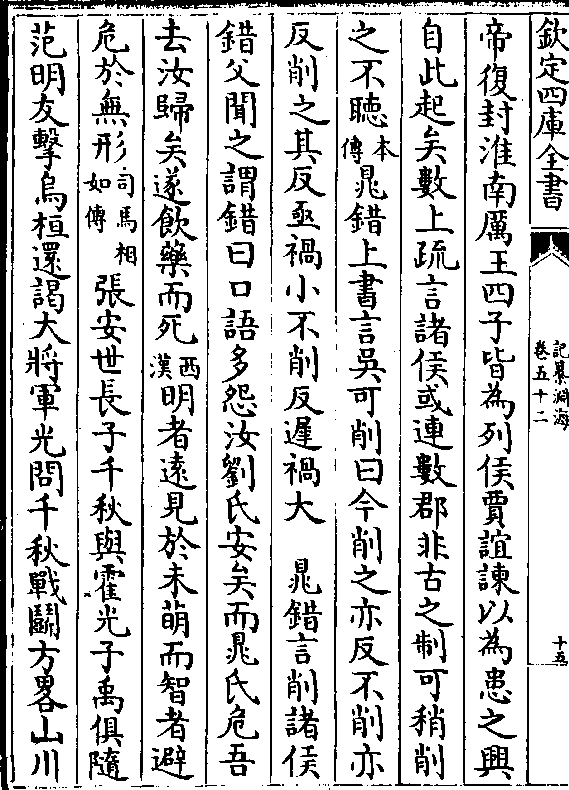 欽定四庫全書
記纂淵海
卷五十二
十五
帝復封淮南厲王四子皆為列侯賈誼諫以為患之興
自此起矣數上疏言諸侯或連數郡非古之制可稍削
之不聴本傳晁錯上書言吳可削曰今削之亦反不削亦
反削之其反亟禍小不削反遲禍大 晁錯言削諸侯
錯父聞之謂錯曰口語多怨汝劉氏安矣而晁氏危吾
去汝歸矣遂飲藥而死西漢明者逺見於未萌而智者避
危於無形司馬相如傳張安世長子千秋與霍光子禹俱隨
范明友擊烏桓還謁大將軍光問千秋戰鬭方畧山川